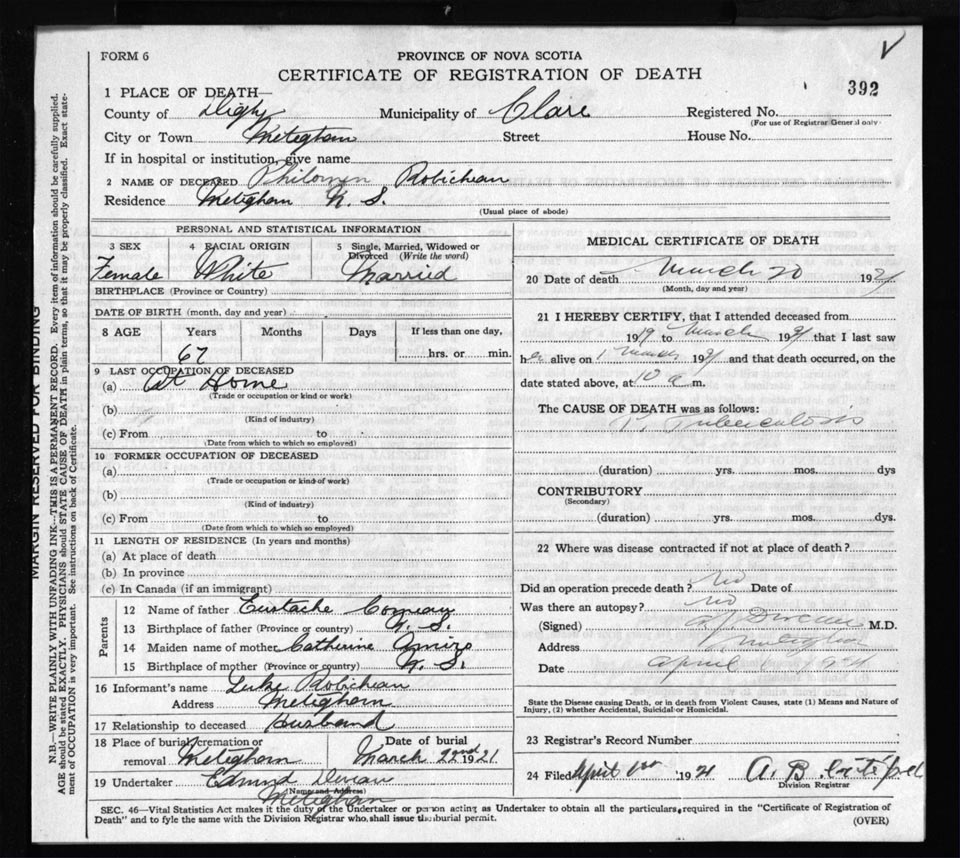 FORM 6
PROVINCE OF NOVA SCOTIA
CERTIFICATE OF REGISTRATION OF DEATH
392
1 PLACE OF DEATH—
County of Digby Municipality of Clare Registered No.
(For use of Registrar General only)
City or Town Meteghan Street House No.
If in hospital or institution, give name
2 NAME OF DECEASED Philomen Robicheau
Residence Meteghan N. S.
(Usual place of abode)
PERSONAL AND STATISTICAL INFORMATION
3 SEX 4 RACIAL ORIGIN 5 Single, Married, Widowed or
Divorced (Write the word)
Female White Married
BIRTHPLACE (Province or Country)
DATE OF BIRTH (month, day and year)
8 AGE Years Months Days If less than one day,
67 hrs. or min.
9 LAST OCCUPATION OF DECEASED
(a) At Home
(Trade or occupation or kind or work)
(b)
(Kind of industry)
(c) From to
(Date from which to which so employed)
10 FORMER OCCUPATION OF DECEASED
(a)
(Trade or occupation or kind of work)
(b)
(Kind of industry)
(c) From to
(Date from which to which so employed)
11 LENGTH OF RESIDENCE (In years and months)
(a) At place of death
(b) In province
(c) In Canada (if an immigrant)
Parents
12 Name of father Eustache Comeau
13 Birthplace of father (Province or country) N. S.
14 Maiden name of mother Catherine Amiro
15 Birthplace of mother (Province or country) N. S.
16 Informant's name Luke Robicheau
Address Meteghan
17 Relationship to deceased Husband
18 Place of burial, cremation or Date of burial
removal Meteghan March 22nd 1921
19 Undertaker Edmund
(Name and Address)
Meteghan
MEDICAL CERTIFICATE OF DEATH
20 Date of death March 20 1921
(Month, day and year)
21 I HEREBY CERTIFY, that I attended deceased from
19 to March 1921 that I last saw
her alive on 1 March 1921 and that death occurred, on the
date stated above, at 10 a m.
The CAUSE OF DEATH was as follows:
P. Tuberculosis
(duration) yrs. mos. dys
CONTRIBUTORY
(Secondary)
(duration) yrs. mos. dys.
22 Where was disease contracted if not at place of death?
Did an operation precede death? No Date of
Was there an autopsy? No
(Signed) M.D.
Address Meteghan
Date April 1 1921
State the Disease causing Death, or in death from Violent Causes, state (1) Means and Nature of
Injury, (2) whether Accidental, Suicidal or Homicidal.
23 Registrar's Record Number
24 Filed April 1st 1921 A. B.
Division Registrar
SEC. 46—Vital Statistics Act makes it the duty of the Undertaker or person acting as Undertaker to obtain all the particulars required in the "Certificate of Registration of
Death" and to fyle the same with the Division Registrar who shall issue the burial permit.
(OVER)
MARGIN RESERVED FOR BINDING
N.B.—WRITE PLAINLY WITH UNFADING INK—THIS IS A PERMANENT RECORD. Every item of information should be carefully supplied.
AGE should be stated EXACTLY. PHYSICIANS should STATE CAUSE OF DEATH in plain terms, so that it may be properly classified. Exact state-
ment of OCCUPATION is very important. See instructions on back of Certificate.